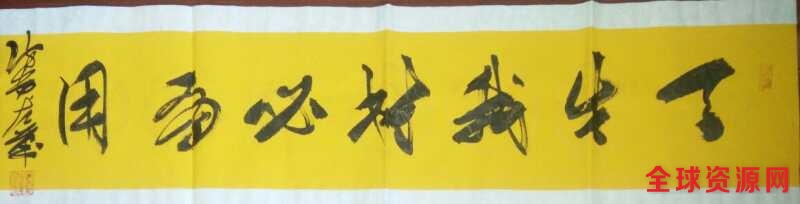 天生我材必有用
全球资源网